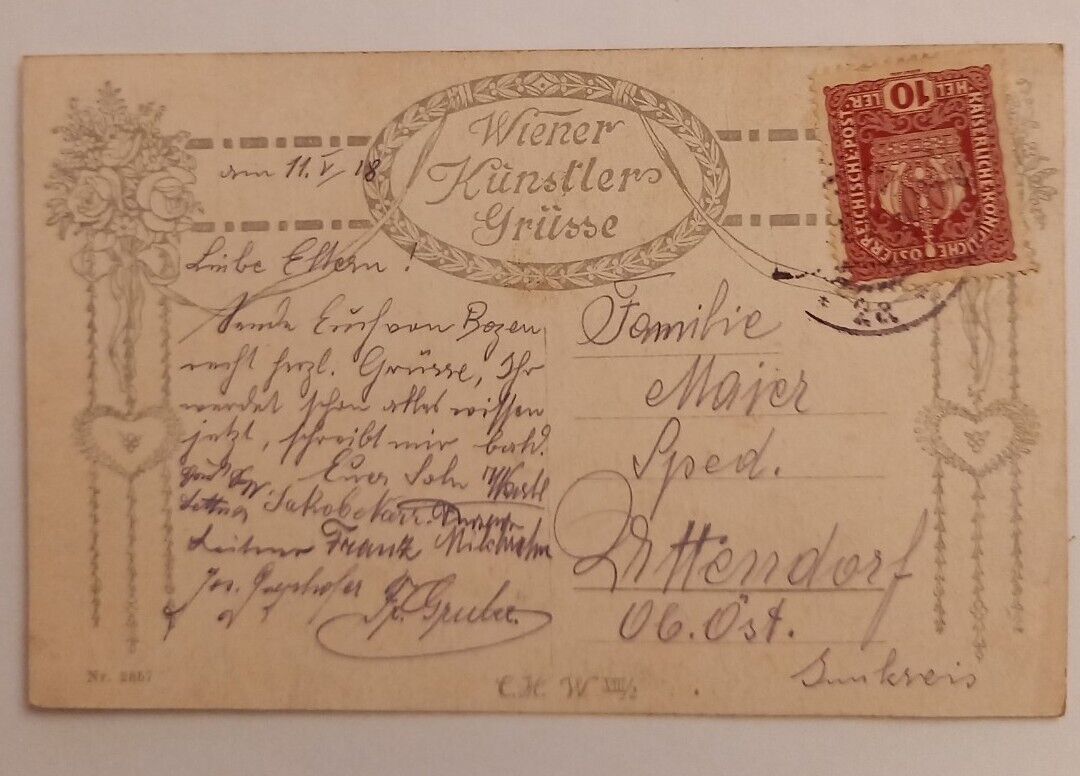 Wiener
Künstler
Grüsse
am 11. V 18
Liebe Eltern!
Sende Euch von Bozen
recht herzl. Grüsse, Ihr
werdet schon alles wissen
jetzt, schreibt mir bald.
Euer Sohn
Jakob
Leitner Franz
Jos.
Fr. Gruber.
Familie
Majer
Sped.
Wittendorf
Ob. Öst.
Innkreis
KAISERLICHE·KÖNIGLICHE ÖSTERREICHISCHE·POST·
10
HEL LER
22
Nr. 2867
C.H. W XIII/2